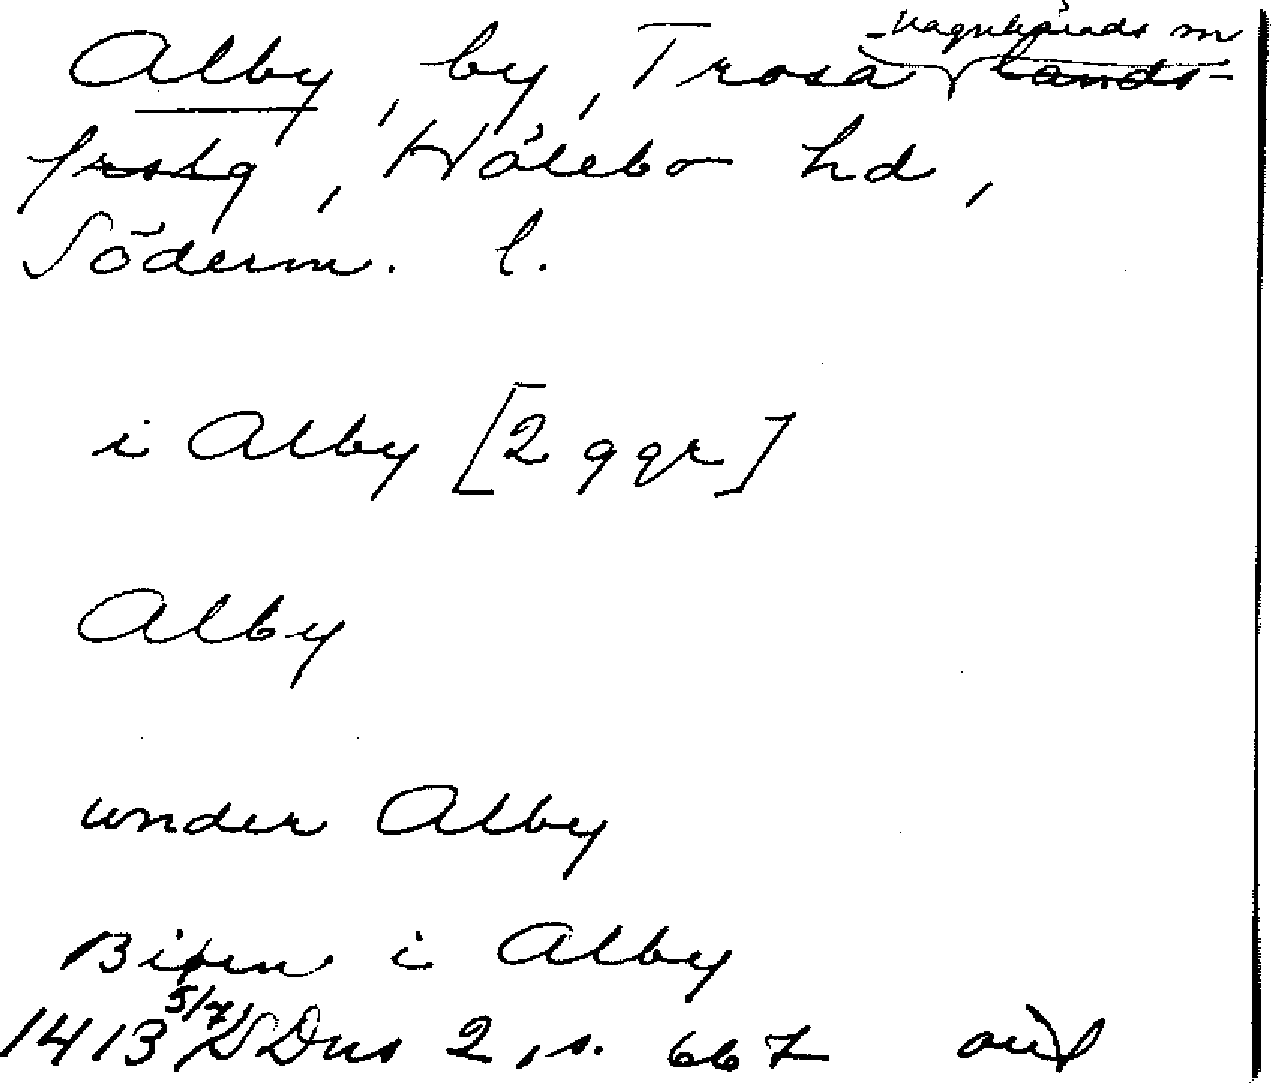 -Vagnhärads sn
Alby, by, Trosa lands-
frslg, Hölebo hd,
Söderm. l.
i Alby [2 ggr]
Alby
under Alby
i Alby
1413 5/7 SDns 2, s. 667